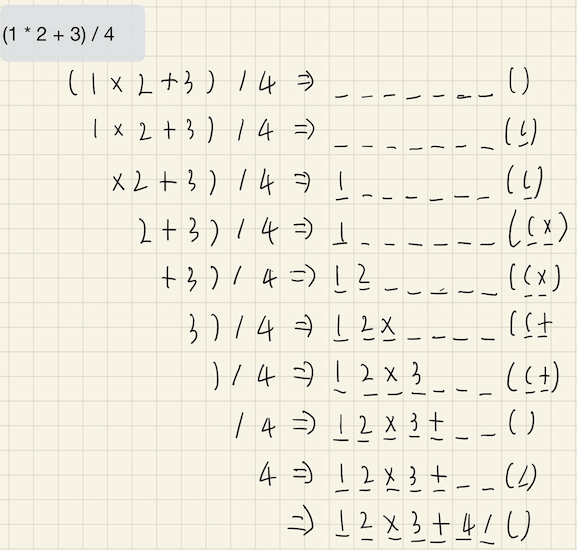 (1 * 2 + 3) / 4
(1 × 2 + 3) / 4 ⇒ _ _ _ _ _ _ _ ()
1 × 2 + 3) / 4 ⇒ _ _ _ _ _ _ _ (()
× 2 + 3) / 4 ⇒ 1 _ _ _ _ _ _ (()
2 + 3) / 4 ⇒ 1 _ _ _ _ _ _ ((×)
+ 3) / 4 ⇒ 1 2 _ _ _ _ _ ((×)
3) / 4 ⇒ 1 2 × _ _ _ _ ((+
) / 4 ⇒ 1 2 × 3 _ _ _ ((+)
/ 4 ⇒ 1 2 × 3 + _ _ ()
4 ⇒ 1 2 × 3 + _ _ (/)
⇒ 1 2 × 3 + 4 / ()